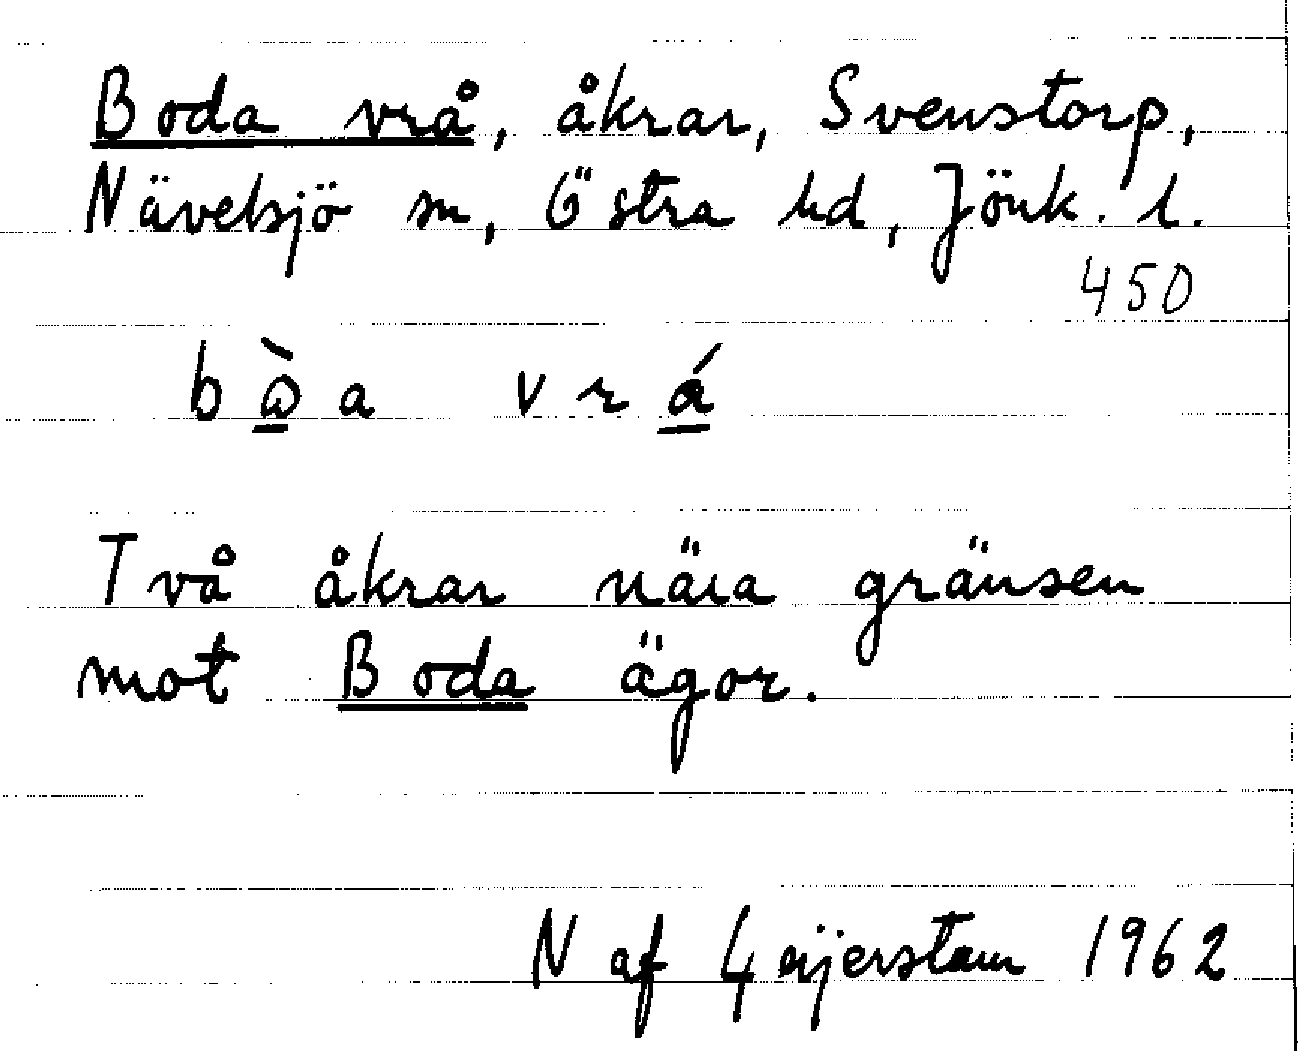 Boda vrå, åkrar, Svenstorp,
Nävelsjö sn, Östra hd, Jönk. l.
450
Två åkrar nära gränsen
mot Boda ägor.
N af Geijerstam 1962